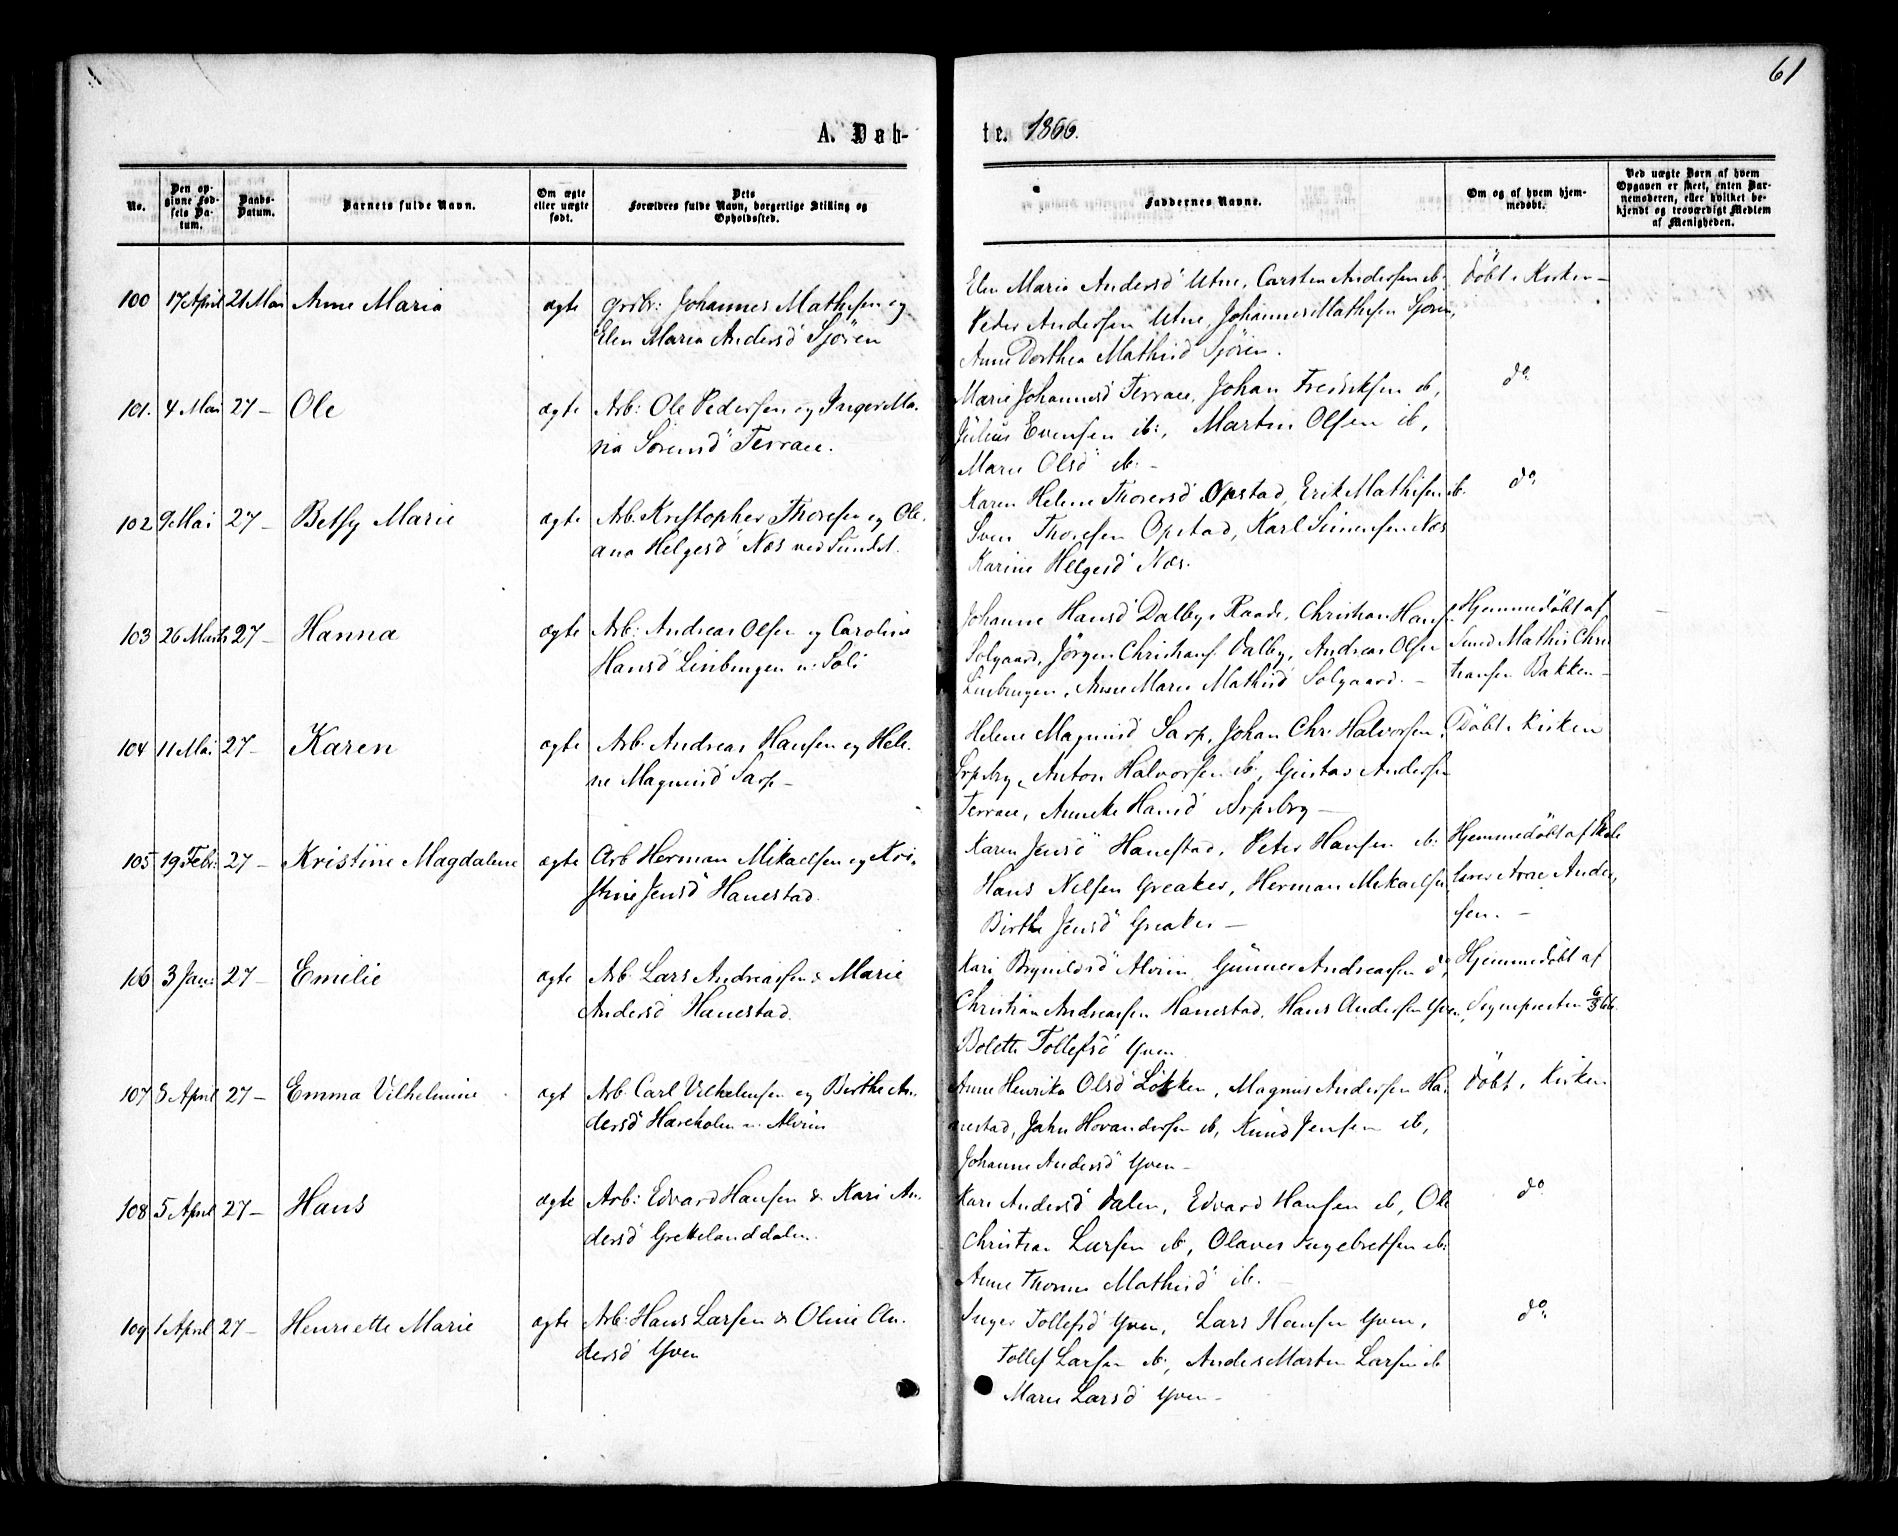 61
A. Døb-
te. 1866.
No.
Den op-
givne Fød-
sels Da-
tum.
Daabs-
Datum.
Barnets fulde Navn.
Om ægte
eller uægte
født.
Dets
Forældres fulde Navn, borgerlige Stilling og
Opholdssted.
Faddernes Navne.
Om og af hvem hjem-
medøbt.
Ved uægte Børn af hvem
Opgaven er skeet, enten Bar-
nemoderen, eller hvilket be-
kjendt og troværdigt Medlem
af Menigheden.
100 17 April 21 Mai Anne Maria ægte Johannes Mathisen og
Elen Maria Andersd Sjøren
Elen Maria Andersd Utne, Carsten Andersen ib.
Peder Andersen Utne, Johannes Mathisen Sjøren,
Anne Dorthea Mathisd Sjøren.
Döbt i Kirken –
101. 4 Mai 27 – Ole ægte Arb: Ole Pedersen og Inger Ma-
ria Sörensd Terrace.
Marie Johannesd Terrace, Johan Fredriksen ib,
Julius Evensen ib:, Martin Olsen ib,
Marie Olsd ib. –
do.
102 9 Mai 27 – Betsy Marie ægte Arb. Kristopher Thoresen og Ole-
ana Helgesd Næs ved Sundet.
Karen Helene Thoresd Opstad, Erik Mathisen ib.
Sven Thoresen Opstad, Karl Simensen Næs
Karine Helgesd Næs.
do.
103 26 Marts 27 – Hanna ægte Arb: Andreas Olsen og Caroline
Hansd Linbingen u. Soli
Johanne Hansd Dalby i Raade, Christian Hans.
Solgaard, Jörgen Christians. Dalby, Andreas Olsen
Linbingen, Anne Marie Mathisd Solgaard. –
Hjemmedöbt af
Smed Mathis Chris
tiansen Bakken –
104 11 Mai 27 – Karen ægte Arb. Andreas Hansen og Hele-
ne Magnusd Sarp –
Helene Magnusd Sarp, Johan Chr. Halvorsen
Arpsbrg, Anton Halvorsen ib, Gustav Andersen
Terrace, Anneke Hansd Arpsbrg –
Döbt i Kirken
105 19 Febr: 27 – Kristine Magdalene ægte Arb Herman Mikaelsen og Kri-
stine Jensd Hanestad.
Karen Jensd Hanestad, Peter Hansen ib:
Hans Nilsen Greaker, Herman Mikaelsen
Birthe Jensd Greaker –
Hjemmedöbt af Skole
lærer Ander-
sen. –
106 3 Jan: 27 – Emilie ægte Arb. Lars Andreassen & Marie
Andersd Hanestad.
Kari Brynildsd Alvim Gunner Andreassen do,
Christian Andreassen Hanestad, Hans Andersen Yven,
Bolette Tollefsd Yven
Hjemmedöbt af
Sognepresten 6/3 66.
107 8 April 27 – Emma Vilhelmine ægt Arb. Carl Vilhelmsen og Birthe An-
dersd Hareholen u. Alvim
Anne Henrike Olsd Løkken, Magnus Andersen Ha-
nestad, John Hovandersen ib, Knud Jensen ib,
Johanne Andersd Yven –
Döbt i Kirken
108 5 April 27 – Hans ægte Arb: Edvard Hansen & Kari An-
dersd Grekelanddalen.
Kari Andersd Dalen, Edvard Hansen ib, Ole
Christian Larsen ib, Olaves Ingebretsen ib:
Anne Thorine Mathisd ib. –
do
109 1 April 27 – Henriette Marie ægte Arb: Hans Larsen & Oline An-
dersd Yven
Inger Tollefsd Yven, Lars Hansen Yven,
Tollef Larsen ib, Anders Martin Larsen ib
Marie Larsd Yven –
do.